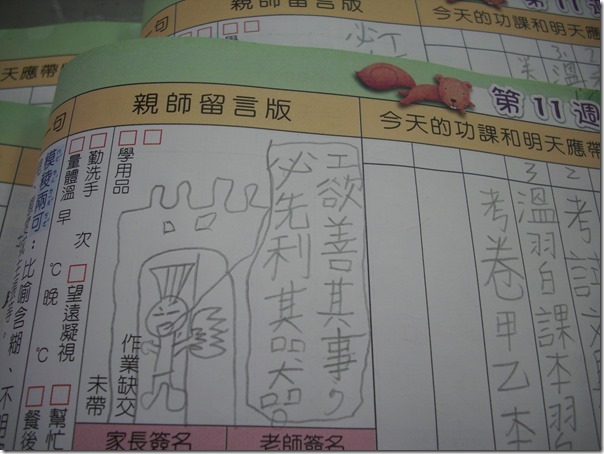 親師留言版
第11週
今天的功課和明天應帶
天應帶
句
親師留言版
第11週
今天的功課和明天應帶
2考試
3溫習課本習
考卷甲乙本
工欲善其事,
必先利其器。
學用品
作業缺交
未帶
□勤洗手 次 □望遠凝視
□量體溫 早 ℃ 晚 ℃
□幫忙
□餐後
模稜兩可:比喻含糊、不明
家長簽名
老師簽名